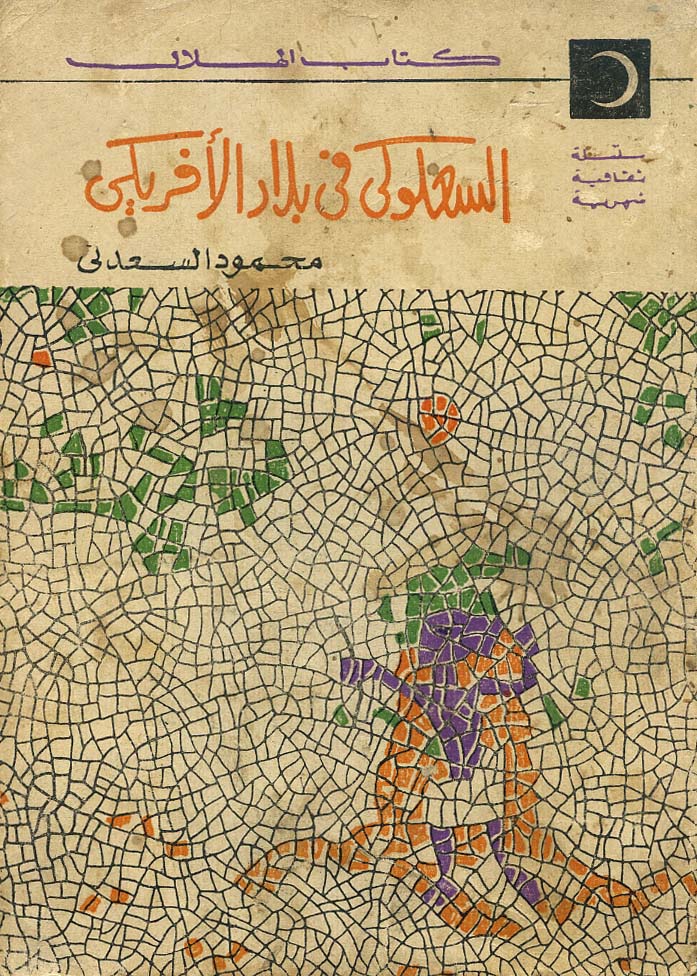 كتاب الهلال
سلسلة
ثقافية
شهرية
السعلوكى فى بلاد الأفريكى
محمود السعدنى